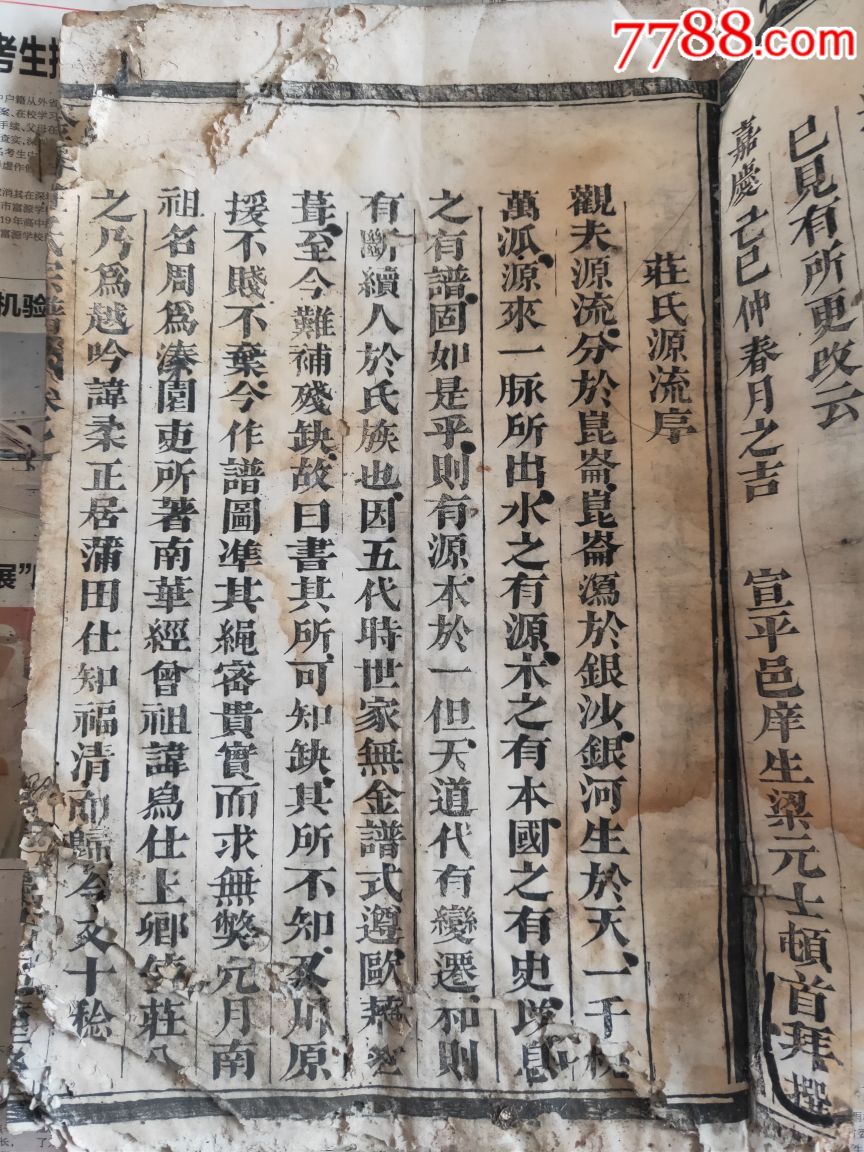 7788.com
已見有所更改云
嘉慶己巳仲春月之吉 宣平邑庠生梁元士頓首拜撰
莊氏源流序
觀夫源流分於崑崙崑崙瀉於銀沙銀河生於天一千枝
萬派源來一脉所出水之有源木之有本國之有史
之有譜固如是乎則有源本於一但天道代有變遷 則
有斷續人於氏族也因五代時世家無金譜式遵歐蘇
葺至今難補殘缺故曰書其所可知缺其所不知 川原
援不賤不棄今作譜圖準其繩審貴實而求無弊 月南
祖名周爲漆園吏所著南華經曾祖諱 仕上卿 莊
之乃爲越吟諱柔正居蒲田仕知福清 歸
考生
机验
展"